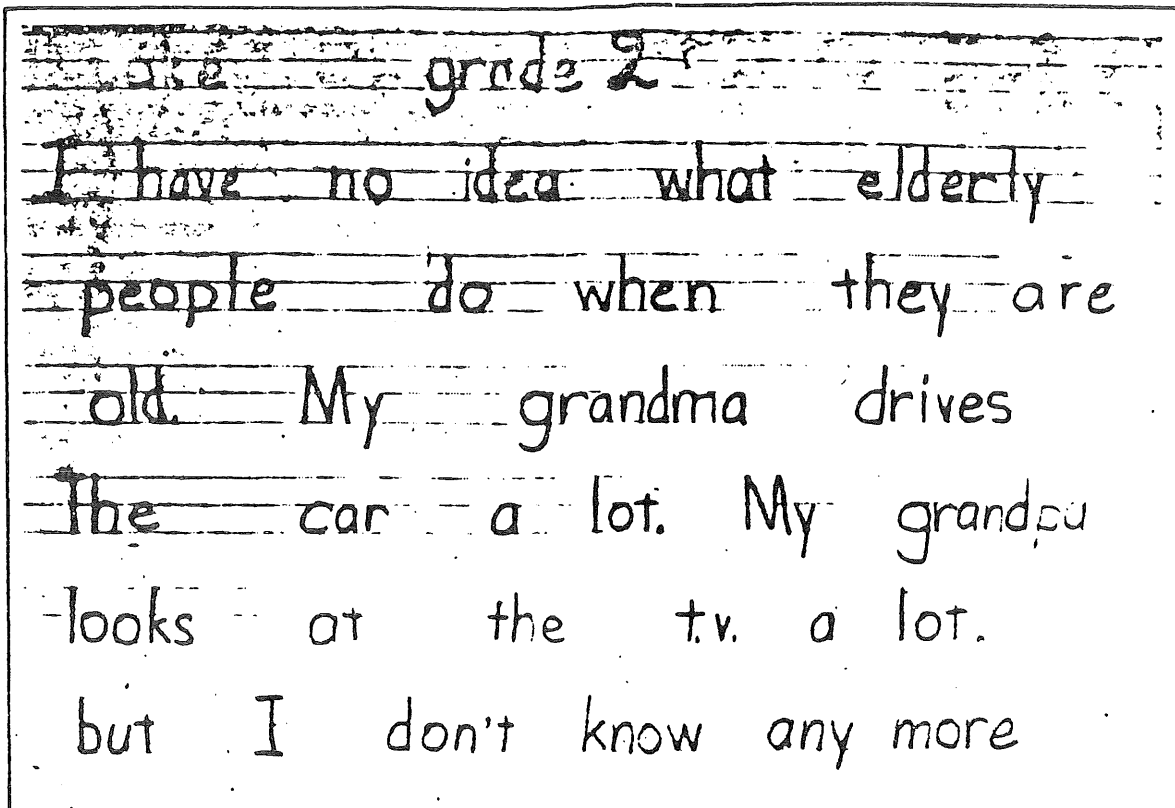 grade 2
I have no idea what elderly
people do when they are
old. My grandma drives
The car a lot. My grandpa
looks at the t.v. a lot.
but I don't know any more